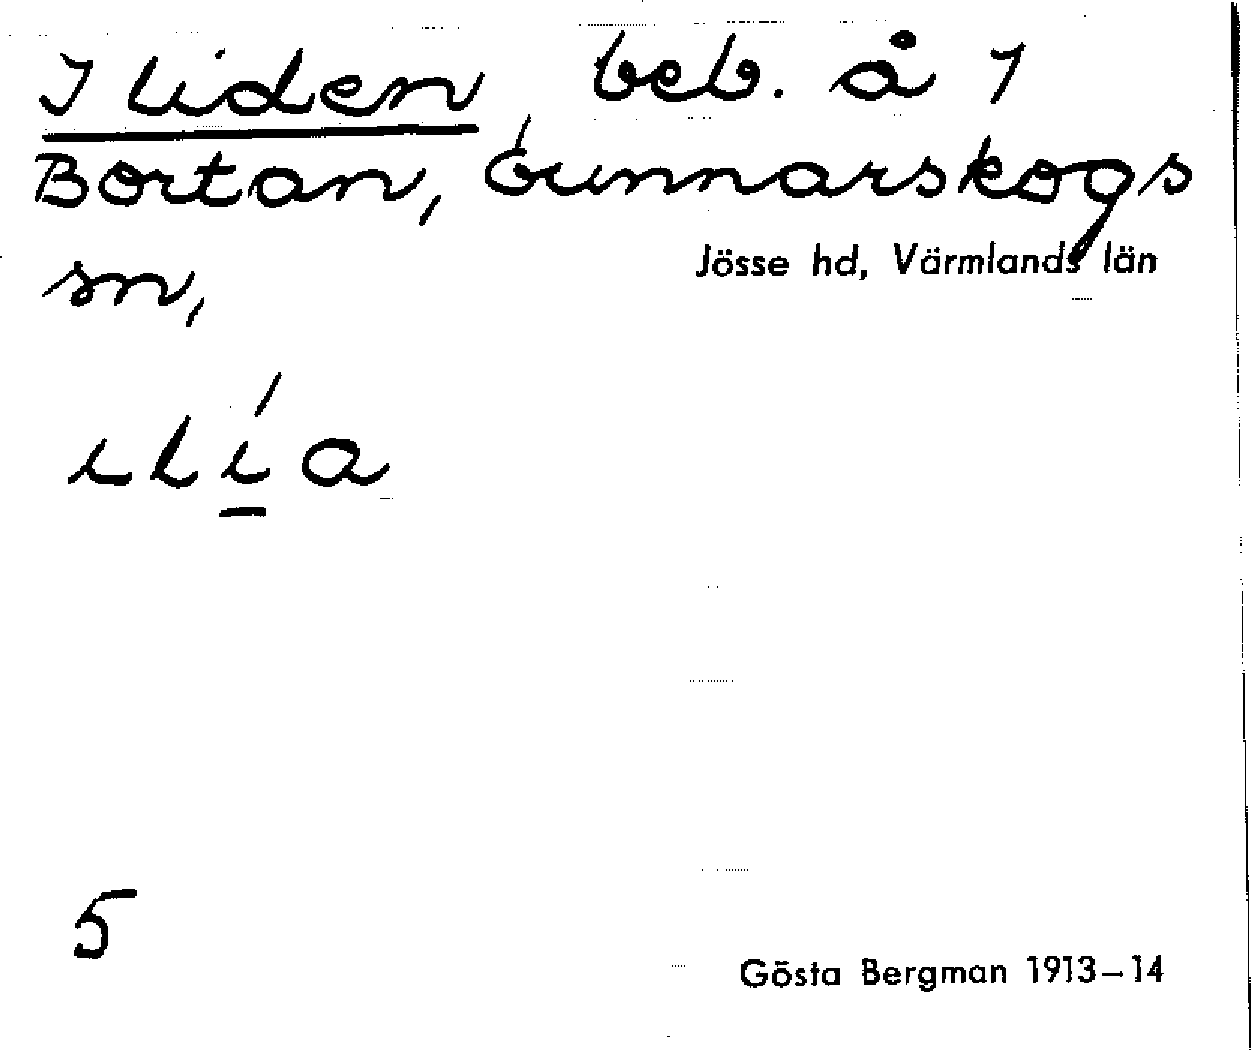 I liden beb. å 1
Bortan, Gunnarskogs
sn,
Jösse hd, Värmlands län
ılı̱́a
5
Gösta Bergman 1913–14